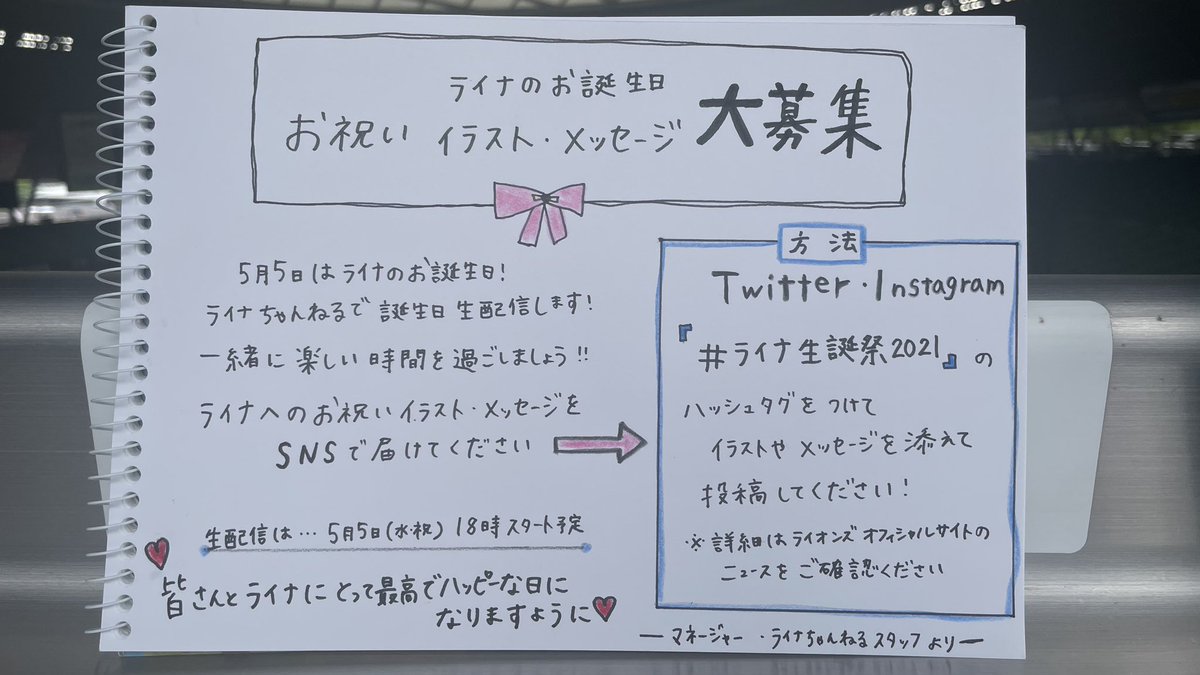 ライナのお誕生日
お祝い イラスト・メッセージ 大募集
5月5日はライナのお誕生日!
ライナちゃんねるで誕生日生配信します!
一緒に楽しい時間を過ごしましょう!!
ライナへのお祝いイラスト・メッセージを
SNSで届けてください
生配信は… 5月5日(水・祝) 18時スタート予定
皆さんとライナにとって最高でハッピーな日に
なりますように
方法
Twitter・Instagram
『#ライナ生誕祭2021』の
ハッシュタグをつけて
イラストやメッセージを添えて
投稿してください!
・※詳細はライオンズオフィシャルサイトの
ニュースをご確認ください
ーマネージャー・ライナちゃんねるスタッフよりー